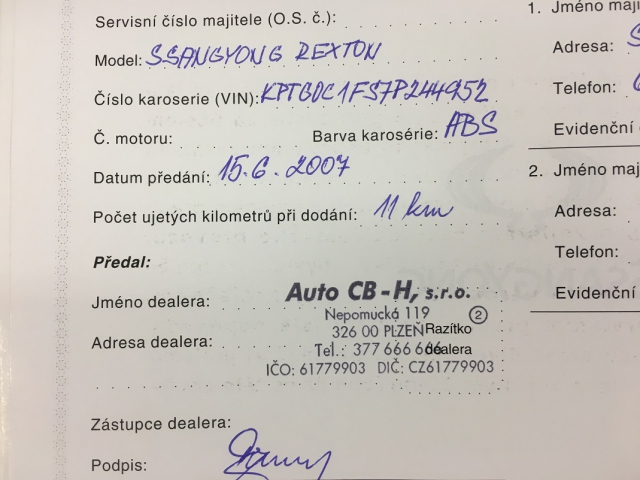 Servisní číslo majitele (O.S. č.):
Model: SSANGYONG REXTON
Číslo karoserie (VIN): KPTG0C1FS7P244952
Č. motoru: Barva karosérie: ABS
Datum předání: 15.6.2007
Počet ujetých kilometrů při dodání: 11 km
Předal:
Jméno dealera:
Adresa dealera:
Auto CB-H, s.r.o.
Nepomucká 119 2
326 00 PLZEŇ Razítko
Tel.: 377 666 dealera
IČO: 61779903 DIČ: CZ61779903
Zástupce dealera:
Podpis:
1. Jméno maj
Adresa:
Telefon:
Evidenční
2. Jméno maj
Adresa:
Telefon:
Evidenční